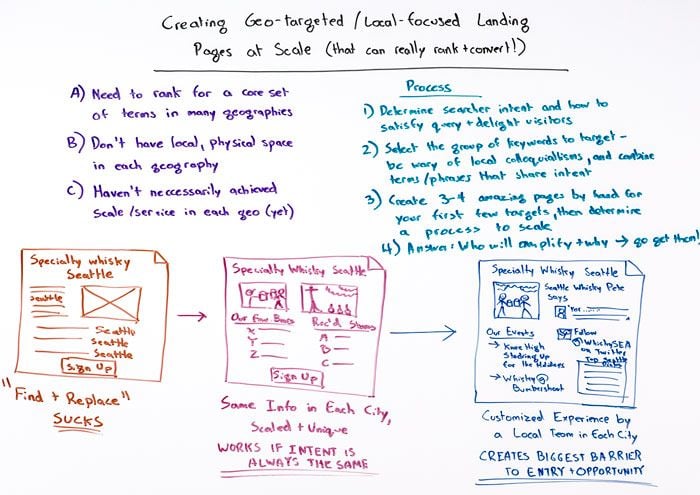 Creating Geo-targeted / Local-focused Landing
Pages at Scale (that can really rank + convert!)
A) Need to rank for a core set
of terms in many geographies
B) Don't have local, physical space
in each geography
C) Haven't neccessarily achieved
scale/service in each geo (yet)
Process
1) Determine searcher intent and how to
satisfy query + delight visitors
2) Select the group of keywords to target -
be wary of local colloquialisms, and combine
terms/phrases that share intent
3) Create 3-4 amazing pages by hand for
your first few targets, then determine
a process to scale
4) Answer: Who will amplify + why → go get them!
Specialty whisky
Seattle
seattle
Seattle
Seattle
Seattle
Sign UP
"Find + Replace"
SUCKS
Specialty Whisky Seattle
Our Fav Bars
X
Y
Z
Rec'd Stores
A
B
C
Sign Up
Same Info in Each City,
Scaled + Unique
WORKS IF INTENT IS
ALWAYS THE SAME
Specialty Whisky Seattle
Seattle Whisky Pete
Says
Our Events
→ Knee High
Stocking Up
for the Holidays
→ Whisky @
Bumbershoot
Follow
@WhiskySEA
on Twitter
Top Seattle
Customized Experience by
a Local Team in Each City
CREATES BIGGEST BARRIER
TO ENTRY + OPPORTUNITY